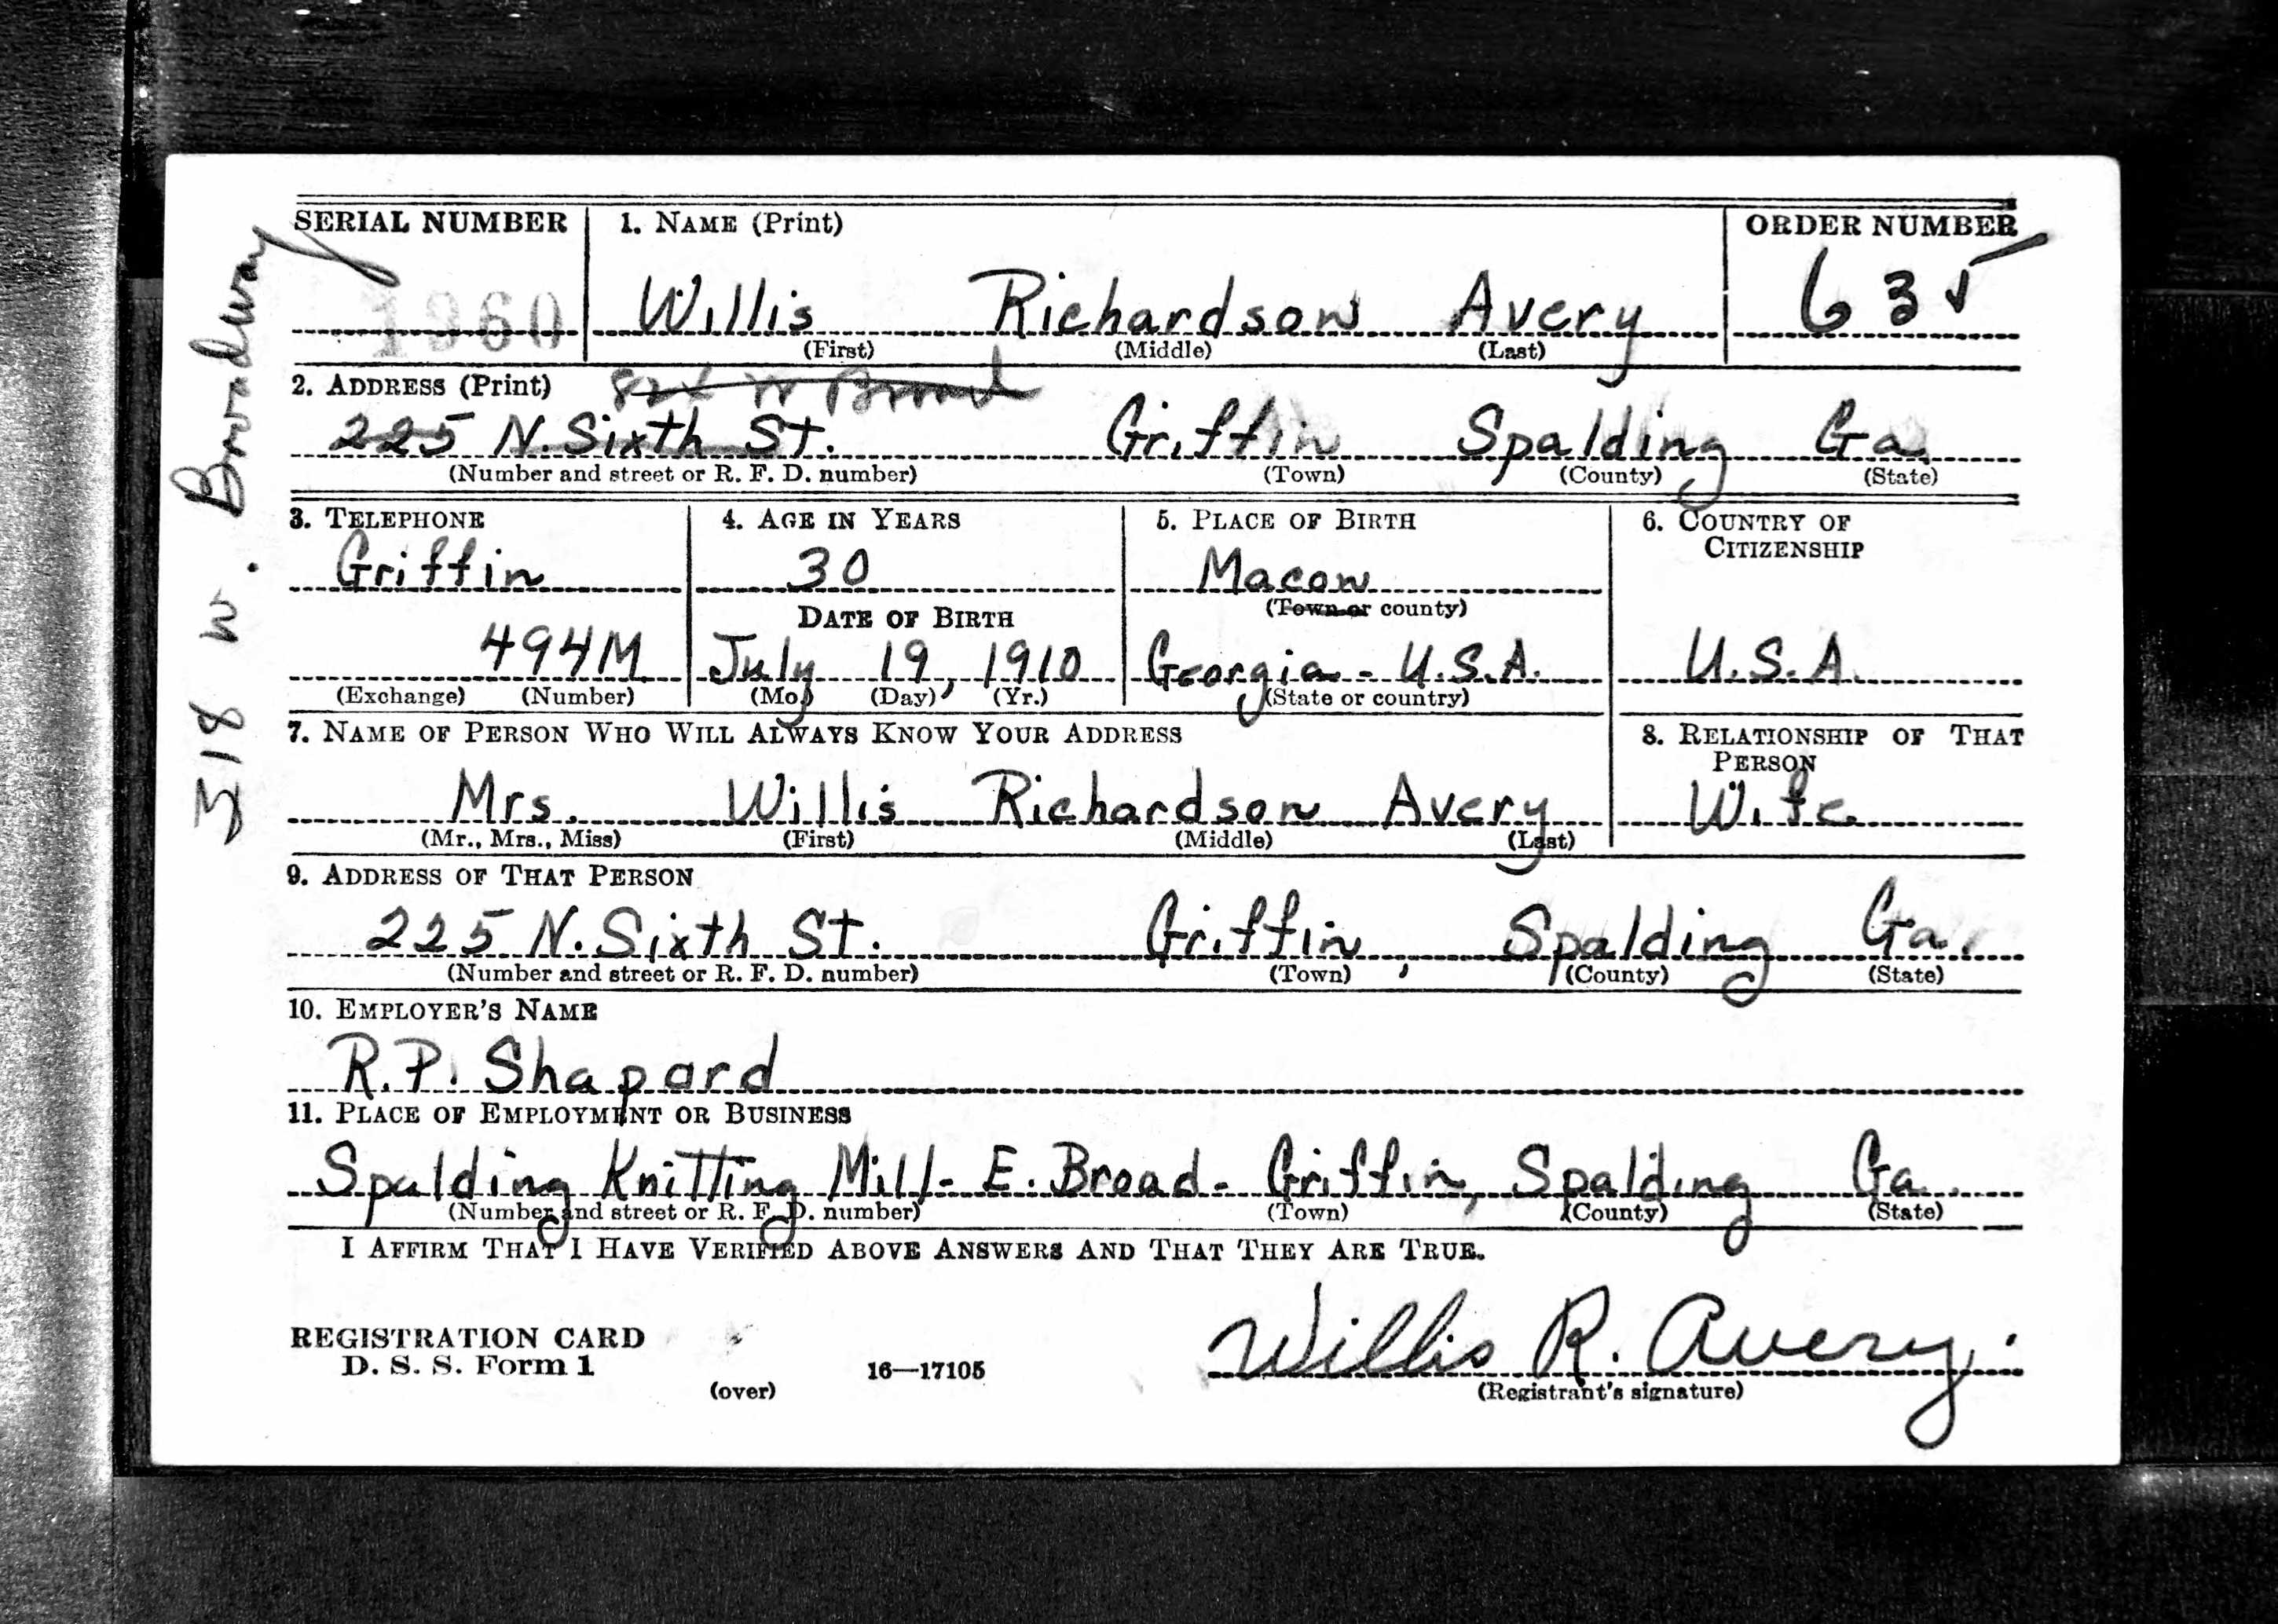 SERIAL NUMBER 1. NAME (Print) ORDER NUMBER
1360 Willis Richardson Avery 635
(First) (Middle) (Last)
2. ADDRESS (Print) W Broad
225 N. Sixth St. Griffin Spalding Ga.
(Number and street or R. F. D. number) (Town) (County) (State)
3. TELEPHONE 4. AGE IN YEARS 5. PLACE OF BIRTH 6. COUNTRY OF
CITIZENSHIP
Griffin 30 Macon
DATE OF BIRTH (Town or county)
494M July 19, 1910 Georgia - U.S.A. U.S.A.
(Exchange) (Number) (Mo.) (Day) (Yr.) (State or country)
7. NAME OF PERSON WHO WILL ALWAYS KNOW YOUR ADDRESS 8. RELATIONSHIP OF THAT
PERSON
Mrs. Willis Richardson Avery Wife
(Mr., Mrs., Miss) (First) (Middle) (Last)
9. ADDRESS OF THAT PERSON
225 N. Sixth St. Griffin, Spalding Ga.
(Number and street or R. F. D. number) (Town) (County) (State)
10. EMPLOYER'S NAME
R.P. Shapard
11. PLACE OF EMPLOYMENT OR BUSINESS
Spalding Knitting Mill - E. Broad - Griffin, Spalding Ga.
(Number and street or R. F. D. number) (Town) (County) (State)
I AFFIRM THAT I HAVE VERIFIED ABOVE ANSWERS AND THAT THEY ARE TRUE.
REGISTRATION CARD
D. S. S. Form 1 16—17105 Willis R. Avery.
(over) (Registrant's signature)
318 W. Broadway